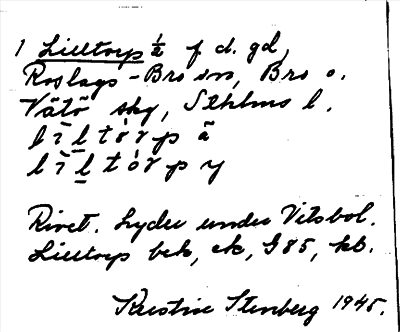 1 Lilltorp ½ f d. gd,
Roslags-Bro sn, Bro o.
Vätö skg, Sthlms l.
l ī l t ò r p ā
l ī l t ò r p y
Rivet. Lyder under Vitsbol.
Lilltorp bek, ek, G85, kb.
Kristine Stenberg 1945.